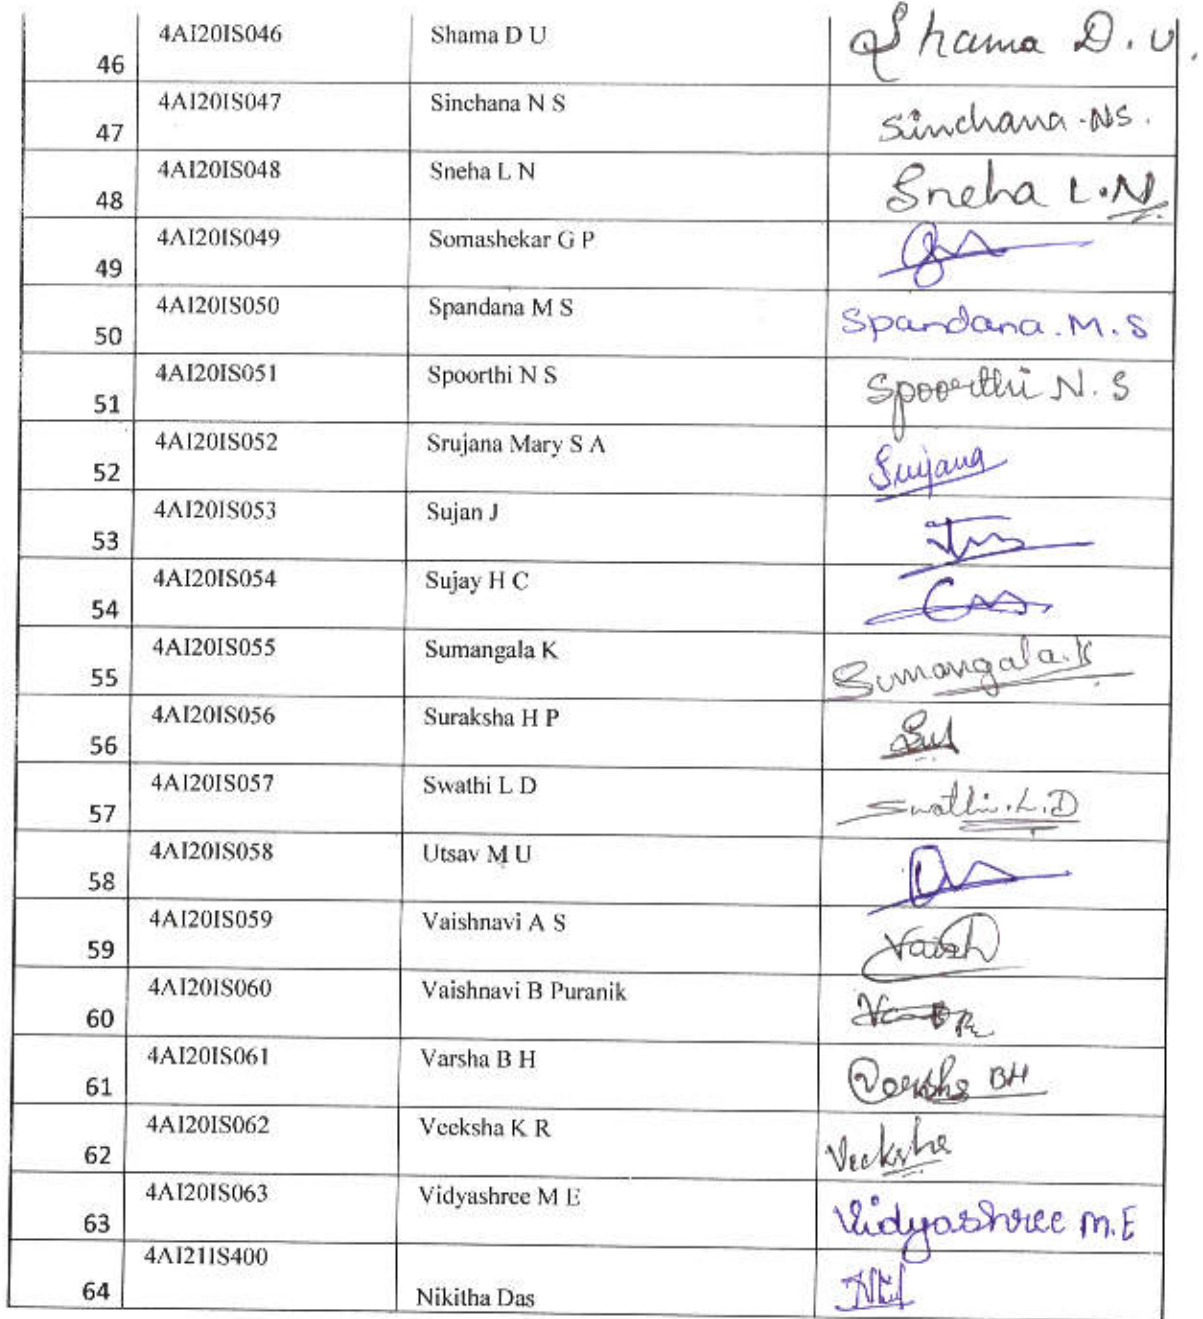 46 4AI20IS046 Shama D U Shama D.U.
47 4AI20IS047 Sinchana N S Sinchana.NS.
48 4AI20IS048 Sneha L N Sneha L.N
49 4AI20IS049 Somashekar G P
50 4AI20IS050 Spandana M S Spandana.M.S
51 4AI20IS051 Spoorthi N S Spoorthi N.S
52 4AI20IS052 Srujana Mary S A Srujana
53 4AI20IS053 Sujan J
54 4AI20IS054 Sujay H C
55 4AI20IS055 Sumangala K Sumangala.K
56 4AI20IS056 Suraksha H P
57 4AI20IS057 Swathi L D Swathi.L.D
58 4AI20IS058 Utsav M U
59 4AI20IS059 Vaishnavi A S Vaish
60 4AI20IS060 Vaishnavi B Puranik
61 4AI20IS061 Varsha B H Varsha BH
62 4AI20IS062 Veeksha K R Veeksha
63 4AI20IS063 Vidyashree M E Vidyashree M.E
64 4AI21IS400 Nikitha Das